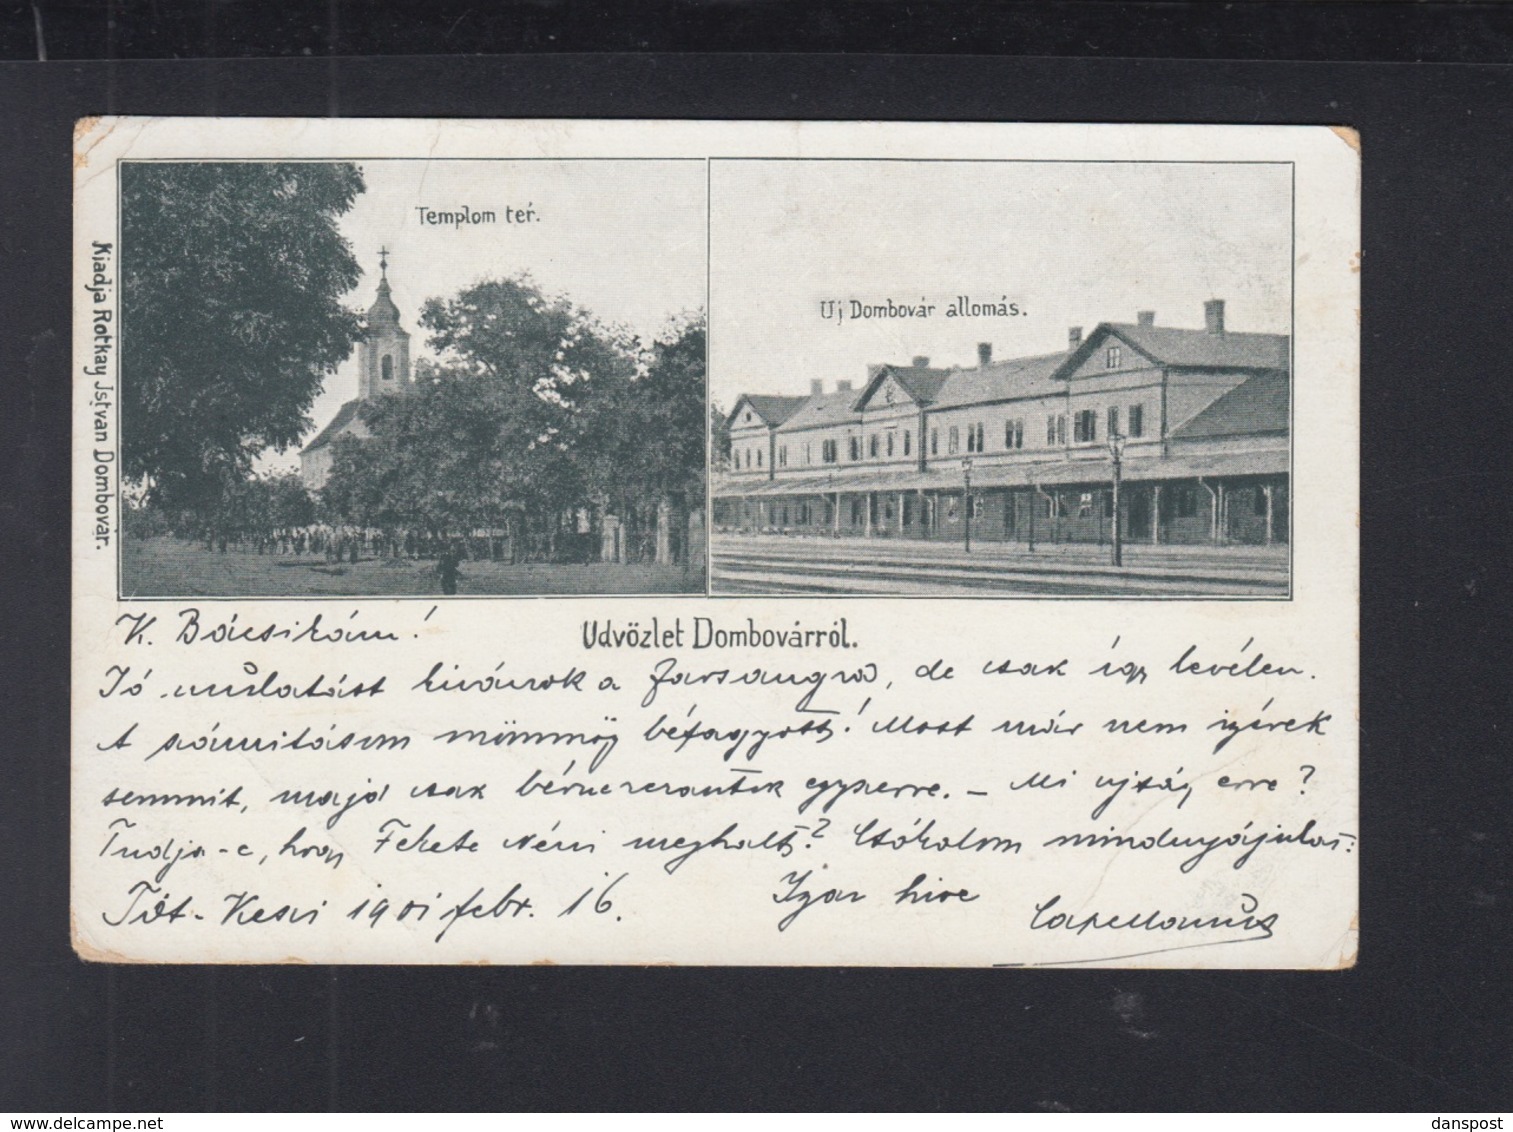 Templom tér.
Uj Dombovár allomás.
Kiadja Rotkay Jstvan Dombovar.
Udvözlet Dombovárról.
K. Bácsikám!
Jó mulatást kivánok a farsangra, de csak így levélen.
A számitásom mind béfagyott! Most már nem igérek
semmit, majd csak egyszerre. – Mi ujság erre?
Tudja-e, hogy Fekete Néni meghalt? Csókolom mindnyájukat:
Tót-Keszi 1901 febr. 16.
Igaz hive
Capellanus
delcampe.net
danspost